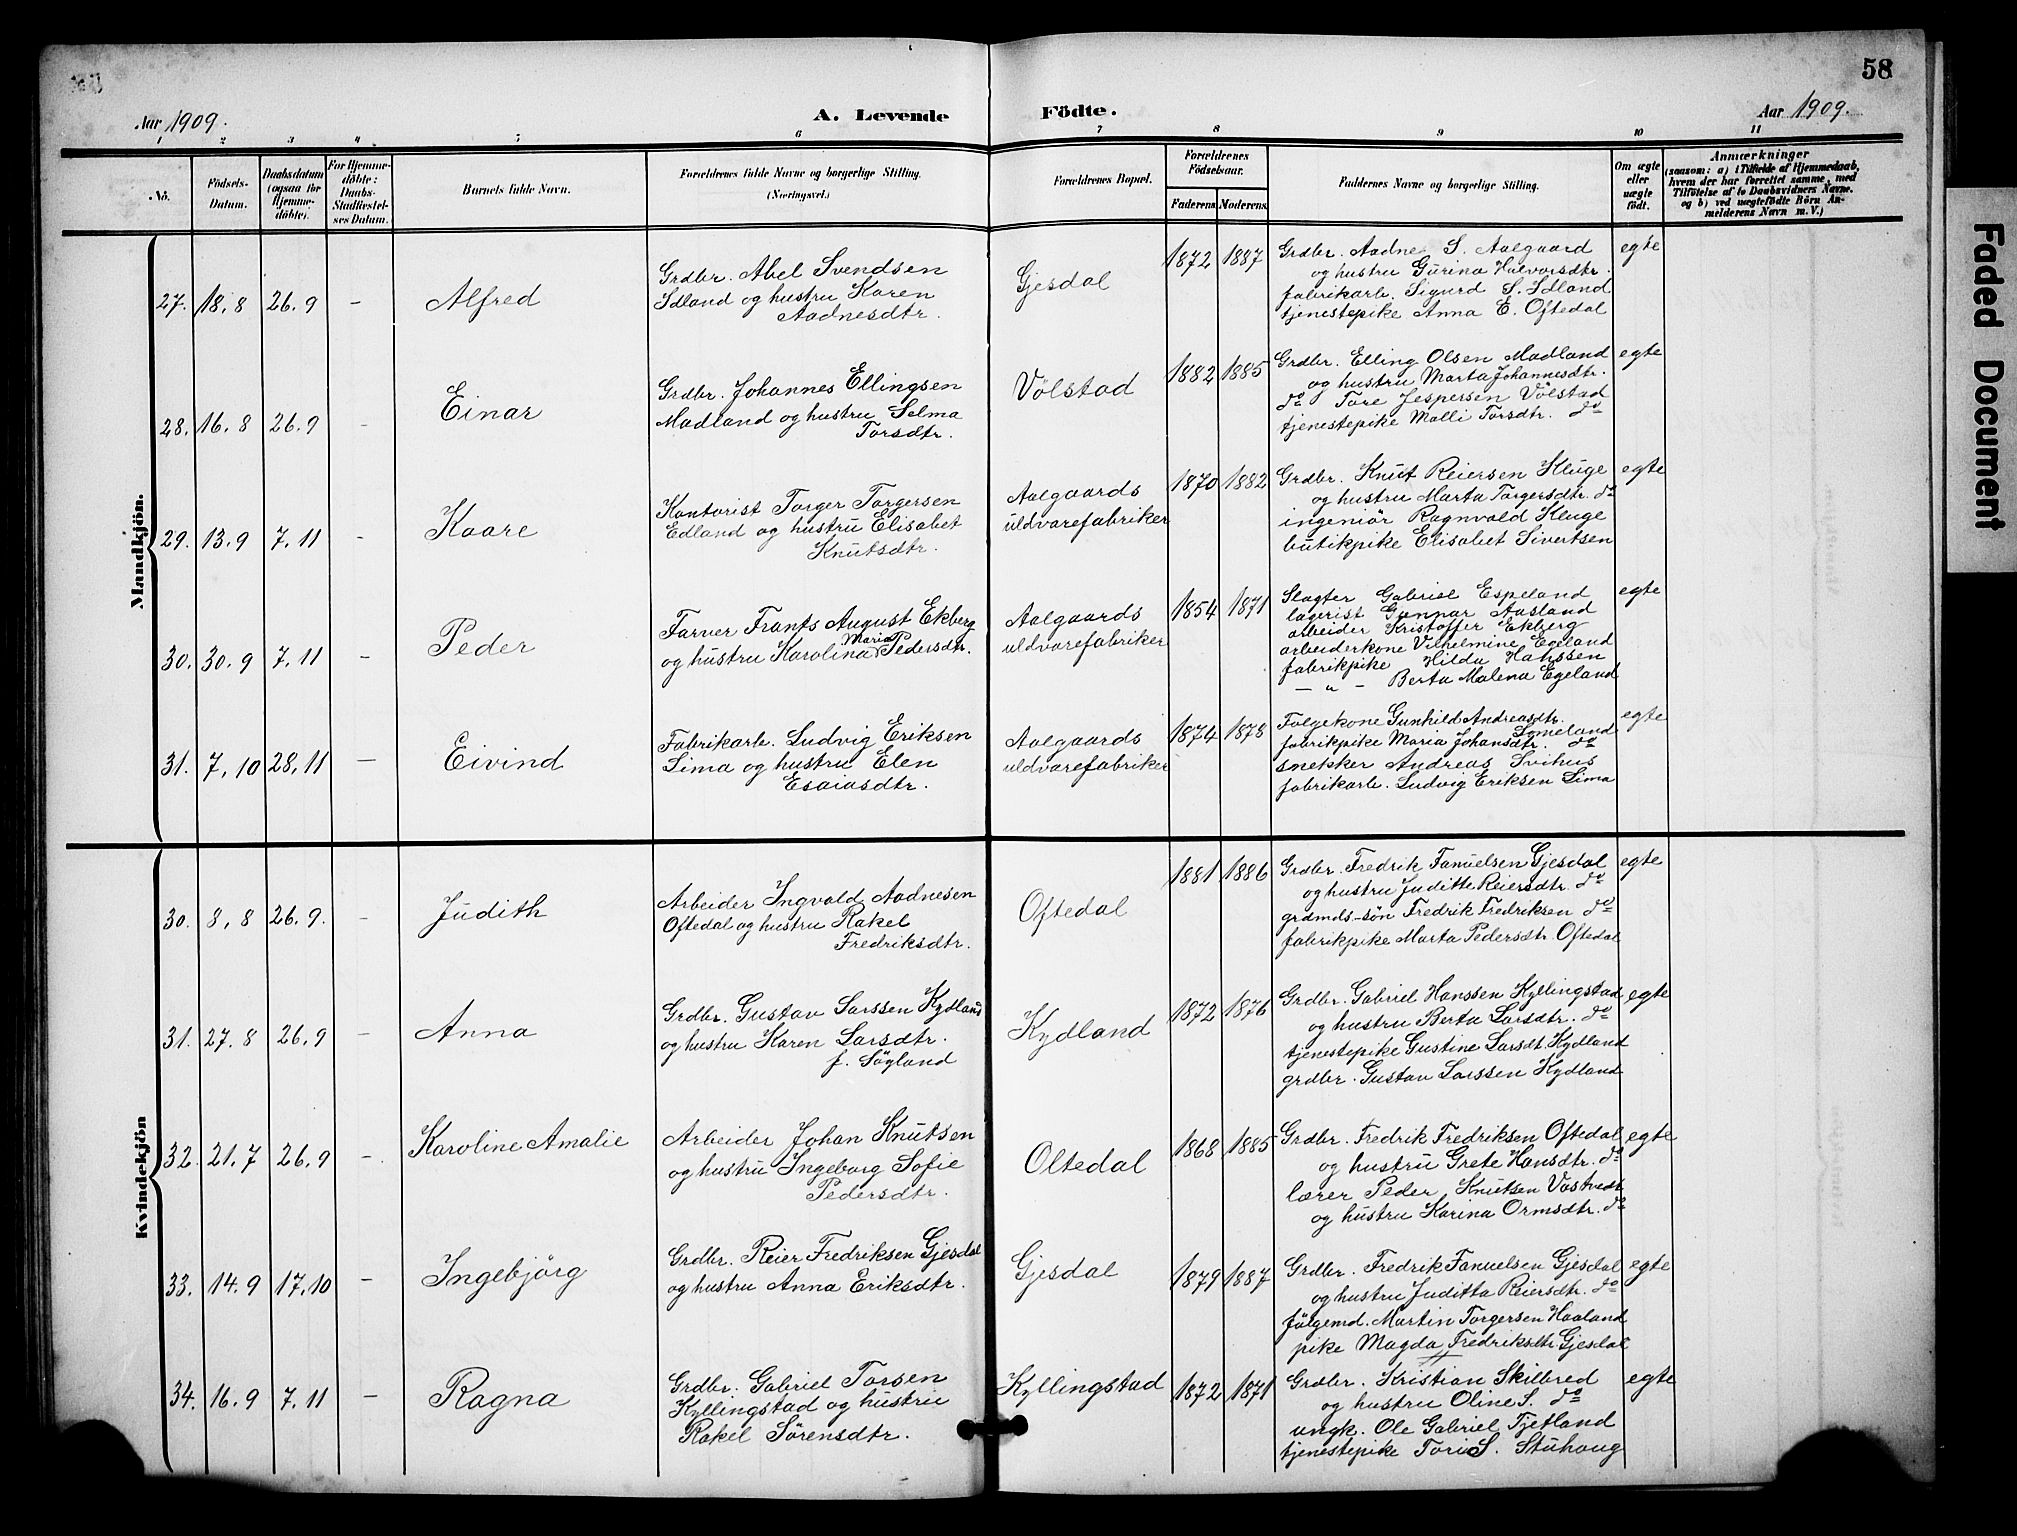 58
Aar 1909.
A. Levende Födte.
Aar 1909.
1 2 3 4 5 6 7 8 9 10 11
No.
Födsels-Datum.
Daabsdatum (ogsaa for Hjemmedöbte).
For Hjemmedöbte: Daabs-Stadfæstelses Datum.
Barnets fulde Navn.
Forældrenes fulde Navne og borgerlige Stilling.
(Næringsvei.)
Forældrenes Bopæl.
Forældrenes Födselsaar.
Faderens. Moderens.
Faddernes Navne og borgerlige Stilling.
Om ægte eller uægte födt.
Anmærkninger
(saasom: a) i Tilfælde af Hjemmedaab, hvem der har forrettet samme, med Tilföielse af to Daabsvidners Navne. og b) ved uægtefödte Börn Anmelderens Navn m. V.)
Mandkjön.
27. 18.8 26.9 – Alfred
Grdbr. Abel Svendsen
Idland og hustru Karen
Aadnesdtr.
Gjesdal 1872 1887
Grdbr. Aadne S. Aalgaard
og hustru Gurina Halvorsdtr.
fabrikarb. Sigurd S. Idland
tjenestepike Anna E. Oftedal
egte
28. 16.8 26.9 - Einar
Grdbr. Johannes Ellingsen
Madland og hustru Selma
Torsdtr.
Völstad 1882 1885
Grdbr. Elling Olsen Madland
og hustru Marta Johannesdtr.
do Tore Jespersen Völstad
tjenestepike Malli Torsdtr. do
egte
29. 13.9 7.11 - Kaare
Kontorist Torger Torgersen
Edland og hustru Elisabet
Knutsdtr.
Aalgaards
uldvarefabriker
1870 1882
Grdbr. Knut Reiersen Kluge
og hustru Marta Torgersdtr. do
ingeniör Ragnvald Kluge
butikpike Elisabet Sivertsen
egte
30. 30.9 7.11 – Peder
Farver Frants August Ekberg
og hustru Karolina Maria Pedersdtr.
Aalgaards
uldvarefabriker
1854 1871
Slagter Gabriel Espeland
lagerist Gunnar Aasland
arbeider Kristoffer Ekberg
arbeiderkone Vilhelmine Egeland
fabrikpike Hilda Hanssen
– " – Berta Malena Egeland
egte
31. 7.10 28.11 – Eivind
Fabrikarb. Ludvig Eriksen
Lima og hustru Elen
Esaiasdtr.
Aalgaards
uldvarefabriker
1874 1878
Folgekone Gunhild Andreasdtr.
Lomeland
fabrikpike Maria Johansdtr. do
snekker Andreas Svihus
fabrikarb. Ludvig Eriksen Lima
egte
Kvindekjön
30. 8.8 26.9. – Judith
Arbeider Ingvald Aadnesen
Oftedal og hustru Rakel
Fredriksdtr.
Oftedal 1881 1886
Grdbr. Fredrik Fanuelsen Gjesdal
og hustru Juditte Reiersdtr. do
grdmds-sön Fredrik Fredriksen do
fabrikpike Marta Pedersdtr Oftedal
egte
31. 27.8 26.9 – Anna
Grdbr. Gustav Larssen Kydland
og hustru Karen Larsdtr.
f. Sögland
Kydland 1872 1876
Grdbr. Gabriel Hanssen Kyllingstad
og hustru Berta Larsdtr. do
tjenestepike Gustine Larsdt. Kydland
grdbr. Gustav Larssen Kydland
egte
32. 21.7 26.9 -. Karoline Amalie
Arbeider Johan Knutsen
og hustru Ingeborg Sofie
Pedersdtr.
Oltedal 1868 1885
Grdbr. Fredrik Fredriksen Oftedal
og hustru Grete Hansdtr. do
lærer Peder Knutsen Vastvedt
og hustru Karina Ormsdtr. do
egte
33. 14.9 17.10 – Ingebjörg
Grdbr. Reier Fredriksen Gjesdal
og hustru Anna Eriksdtr.
Gjesdal 1879 1887
Grdbr. Fredrik Fanuelsen Gjesdal
og hustru Juditta Reiersdtr. do
fölgemd. Martin Torgersen Haaland
pike Magda Fredriksdtr. Gjesdal
egte
34. 16.9 7.11 – Ragna
Grdbr. Gabriel Torsen
Kyllingstad og hustru
Rakel Sörensdtr.
Kyllingstad 1872 1871
Grdbr. Kristian Skilbred
og hustru Oline S. do
ungk. Ole Gabriel Fjetland
tjenestepike Tori S. Stuhaug
egte
Faded Document